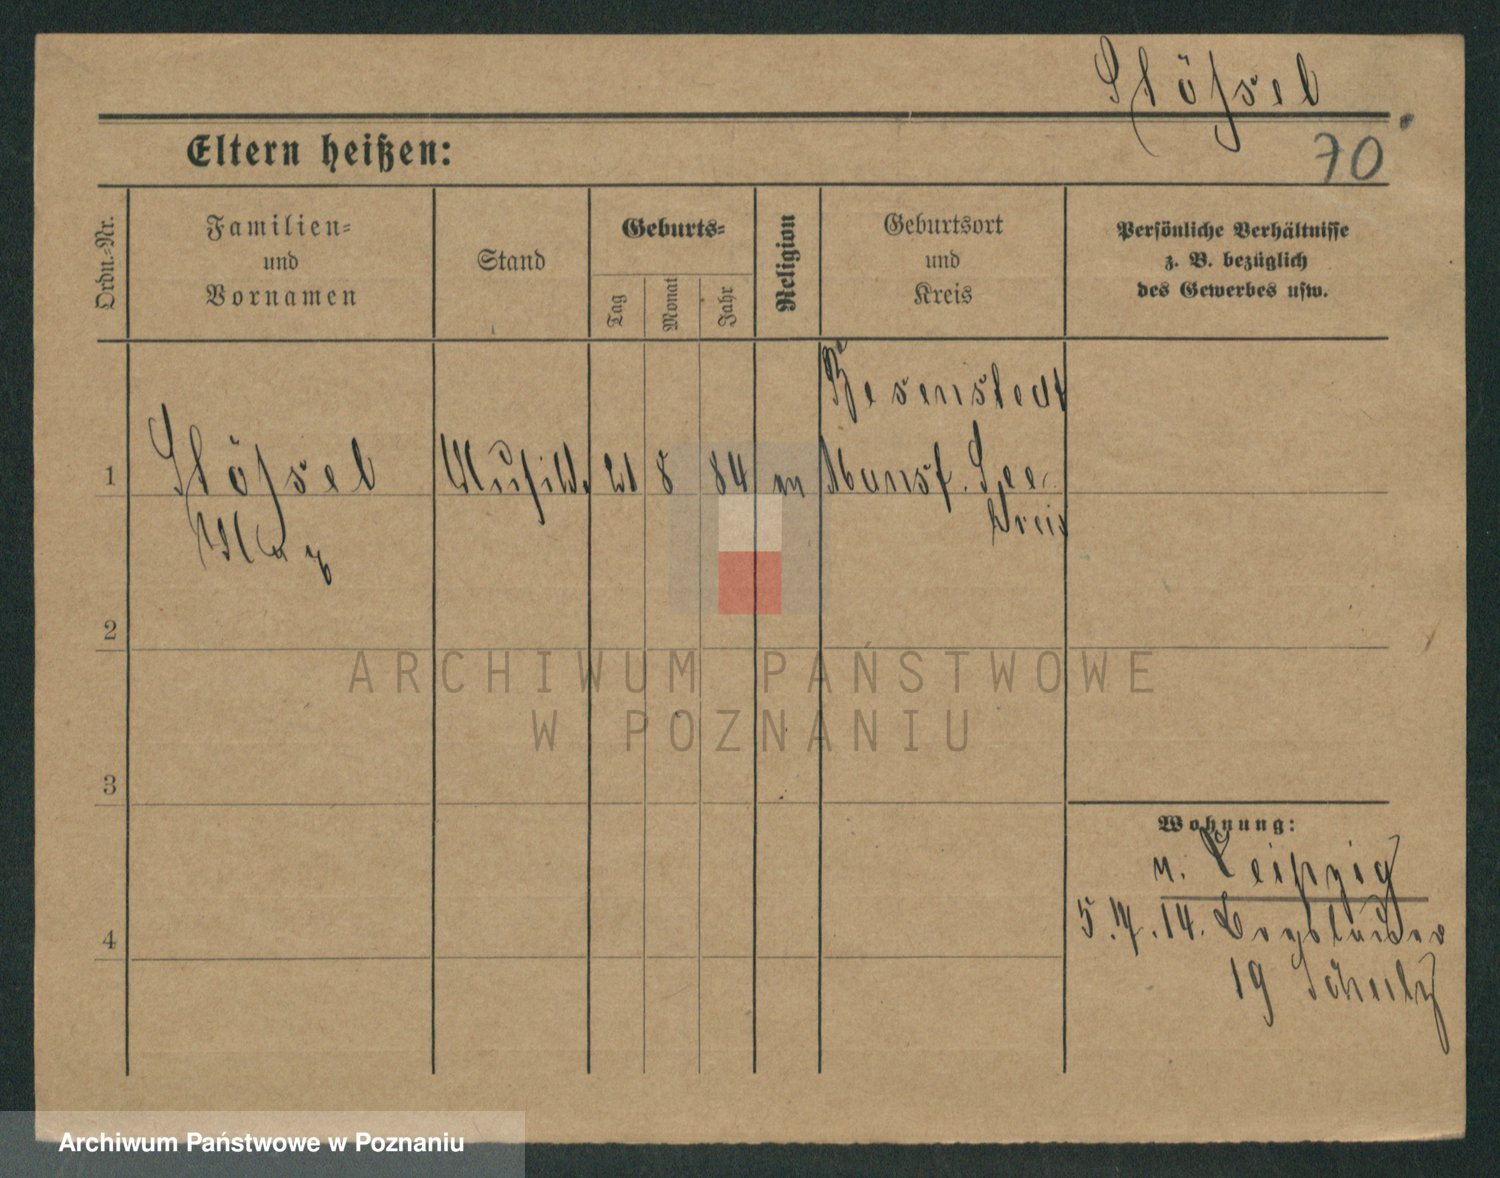 Stößel
70
Eltern heißen:
Ordn.-Nr.
Familien-
und
Vornamen
Stand
Geburts-
Tag
Monat
Jahr
Religion
Geburtsort
und
Kreis
Persönliche Verhältnisse
z. B. bezüglich
des Gewerbes usw.
Besenstedt
1 Stößel 21 8 84 Mansf. See
Kreis
Max
2
ARCHIWUM PAŃSTWOWE
W POZNANIU
3
Wohnung:
n. Leipzig
4
5. 14.
19 Schulz
Archiwum Państwowe w Poznaniu